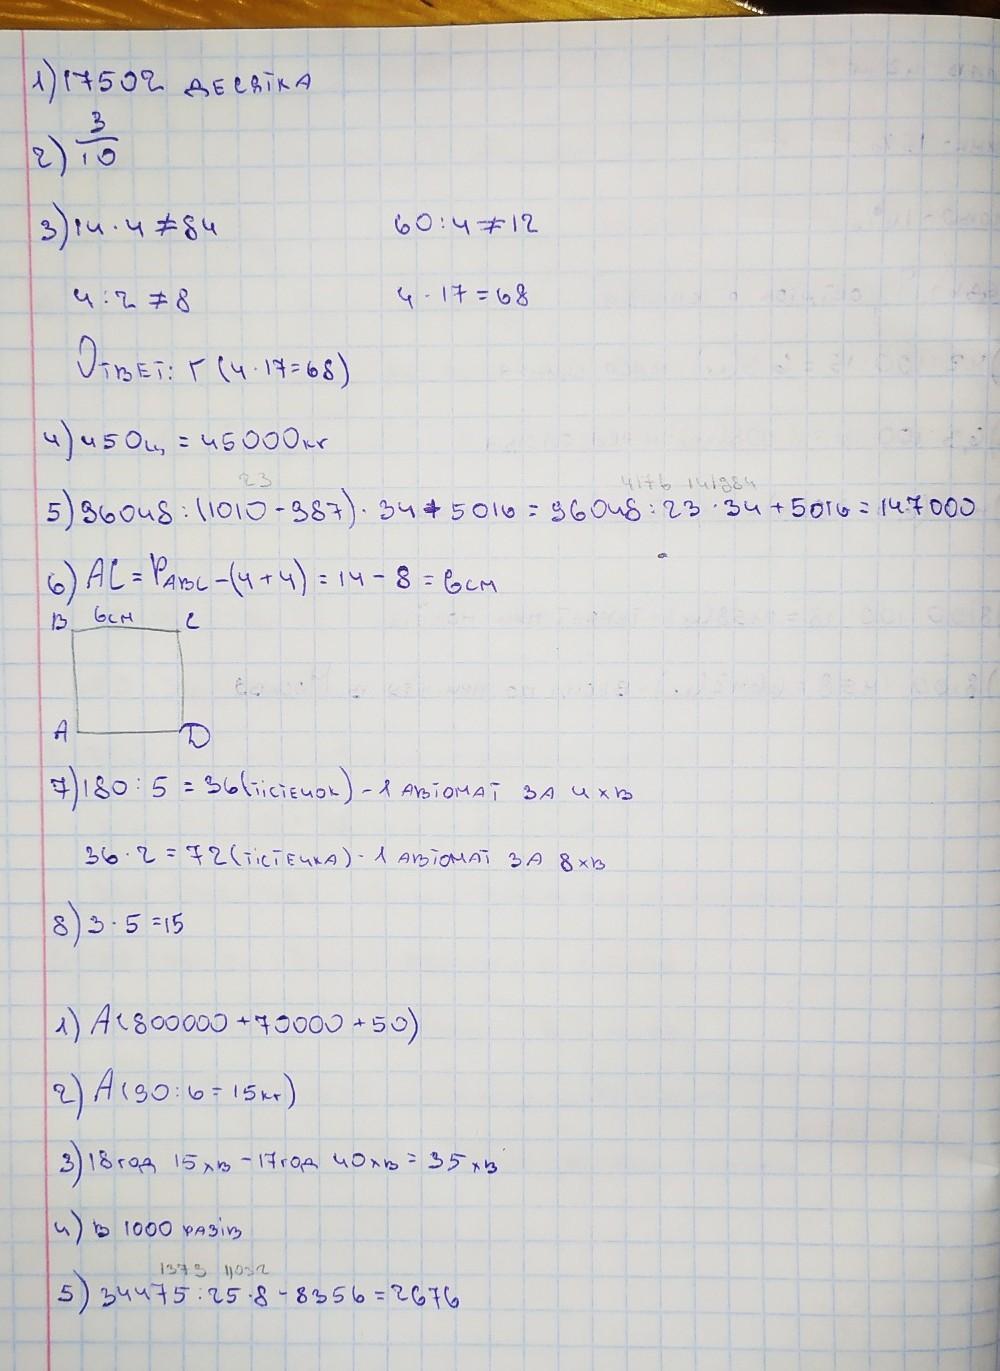 1) 17502 ДЕСЯТКА
2) 3/10
3) 14 · 4 ≠ 84 60 : 4 ≠ 12
4 : 2 ≠ 8 4 · 17 = 68
Ответ: Г (4 · 17 = 68)
4) 450ц = 45000кг
23 4176 141984
5) 96048 : (1010 - 987) · 34 + 5016 = 96048 : 23 · 34 + 5016 = 147000
6) AC = P ABC - (4 + 4) = 14 - 8 = 6см
B 6см C
A D
7) 180 : 5 = 36 (тістечок) - 1 автомат за 4 хв
36 · 2 = 72 (тістечка) - 1 автомат за 8 хв
8) 3 · 5 = 15
1) А (800000 + 70000 + 50)
2) А (90 : 6 = 15кг)
3) 18 год 15 хв - 17 год 40 хв = 35 хв
4) в 1000 разів
1379 11032
5) 34475 : 25 · 8 - 8356 = 2676